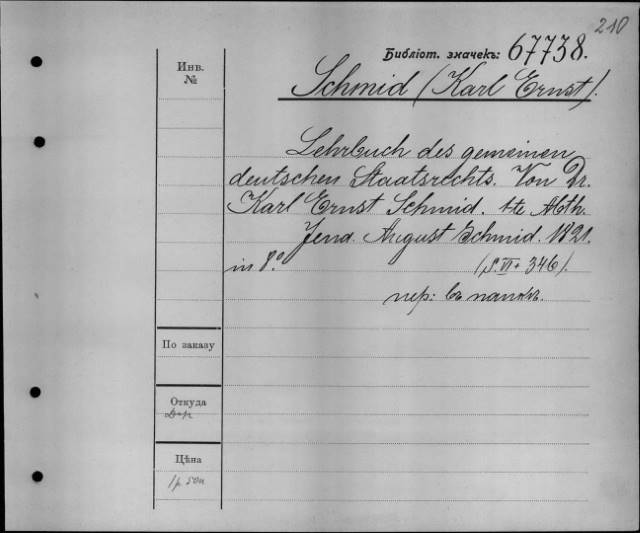 210
Библіот. значекъ: 67738.
Инв.
№
Schmid (Karl Ernst).
Lehrbuch des gemeinen
deutschen Staatsrechts. Von Dr.
Karl Ernst Schmid. 1te Abth.
Jena. August Schmid. 1821.
in 8º.
(S. VI + 346).
пер: въ папкѣ.
По заказу
Откуда
Цѣна
1 р. 50к